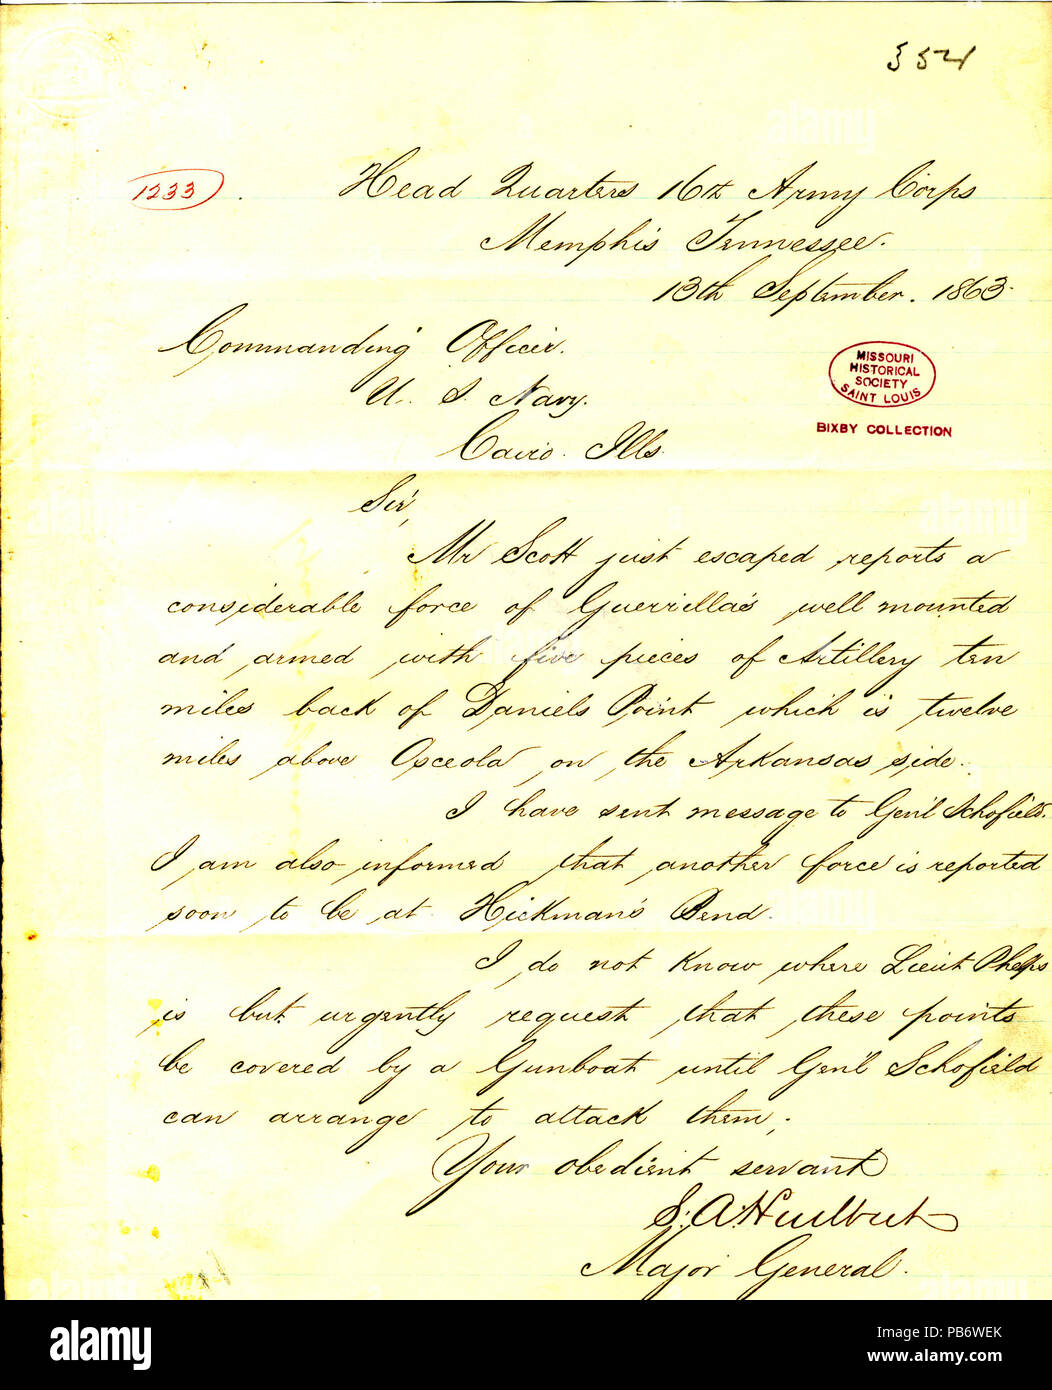 554
1233
Head Quarters 16th Army Corps
Memphis Tennessee.
13th September. 1863.
Commanding Officer.
U. S. Navy.
Cairo. Ills.
MISSOURI
HISTORICAL
SOCIETY
SAINT LOUIS
BIXBY COLLECTION
Sir,
Mr Scott just escaped reports a
considerable force of Guerrilla's well mounted
and armed with five pieces of Artillery ten
miles back of Daniels Point which is twelve
miles above Osceola on the Arkansas side.
I have sent message to Gen'l Schofield.
I am also informed that another force is reported
soon to be at Hickman's Bend.
I do not know where Lieut Phelps
is but urgently request that these points
be covered by a Gunboat until Gen'l Schofield
can arrange to attack them.
Your obedient servant
S. A. Hurlbut
Major General.
alamy
Image ID: PB6WEK
www.alamy.com